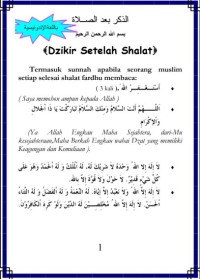 الذكر بعد الصلاة
باللغة الإندونيسية
بسم الله الرحمن الرحيم
﴾Dzikir Setelah Shalat﴿
Termasuk sunnah apabila seorang muslim
setiap selesai shalat fardhu membaca:
أَسْتَغْفِرُ اللهَ ( 3 kali )
( Saya memohon ampun kepada Allah )
اللَّهُمَّ أَنْتَ السَّلَامُ وَمِنْكَ السَّلَامُ تَبَارَكْتَ يَا ذَا الْجَلَالِ
وَالْإِكْرَامِ
(Ya Allah Engkau Maha Sejahtera, dari-Mu
kesejahteraan,Maha Berkah Engkau wahai Dzat yang memiliki
Keagungan dan Kemuliaan ).
لَا إِلَهَ إِلَّا اللهُ وَحْدَهُ لَا شَرِيْكَ لَهُ، لَهُ الْمُلْكُ وَ لَهُ الْحَمْدُ وَهُوَ عَلَى
كُلِّ شَيْءٍ قَدِيْرٌ. لَا حَوْلَ وَلَا قُوَّةَ إِلَّا بِاللهِ.
لَا إِلَهَ إِلَّا اللهُ وَلَا نَعْبُدُ إِلَّا إِيَّاهُ، لَهُ النِّعْمَةُ وَ لَهُ الْفَضْلُ وَ لَهُ الثَّنَاءُ
الْحَسَنُ. لَا إِلَهَ إِلَّا اللهُ مُخْلِصِيْنَ لَهُ الدِّيْنَ وَلَوْ كَرِهَ الْكَافِرُوْنَ.
1